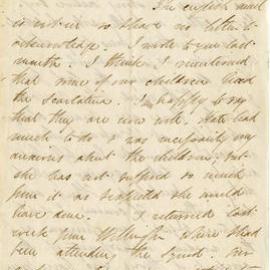 The English mail
is not in so I have no letter to
acknowledge. I wrote to you last
month. I think I mentioned
that some of our children had
the scarlatina. I am happy to say
that they are now well. Kate had
much to do & was necessarily very
anxious about the children; but
she has not suffered so much
from it as I expected she would
have done. I returned last
week from Wellington where I had
been attending the Synod. Our